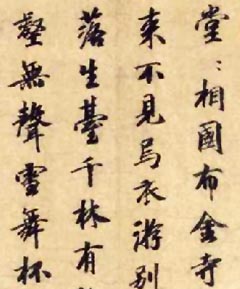 堂〻相國布金寺
來不見烏衣游别
落生臺千林有
壑無聲雪舞杯